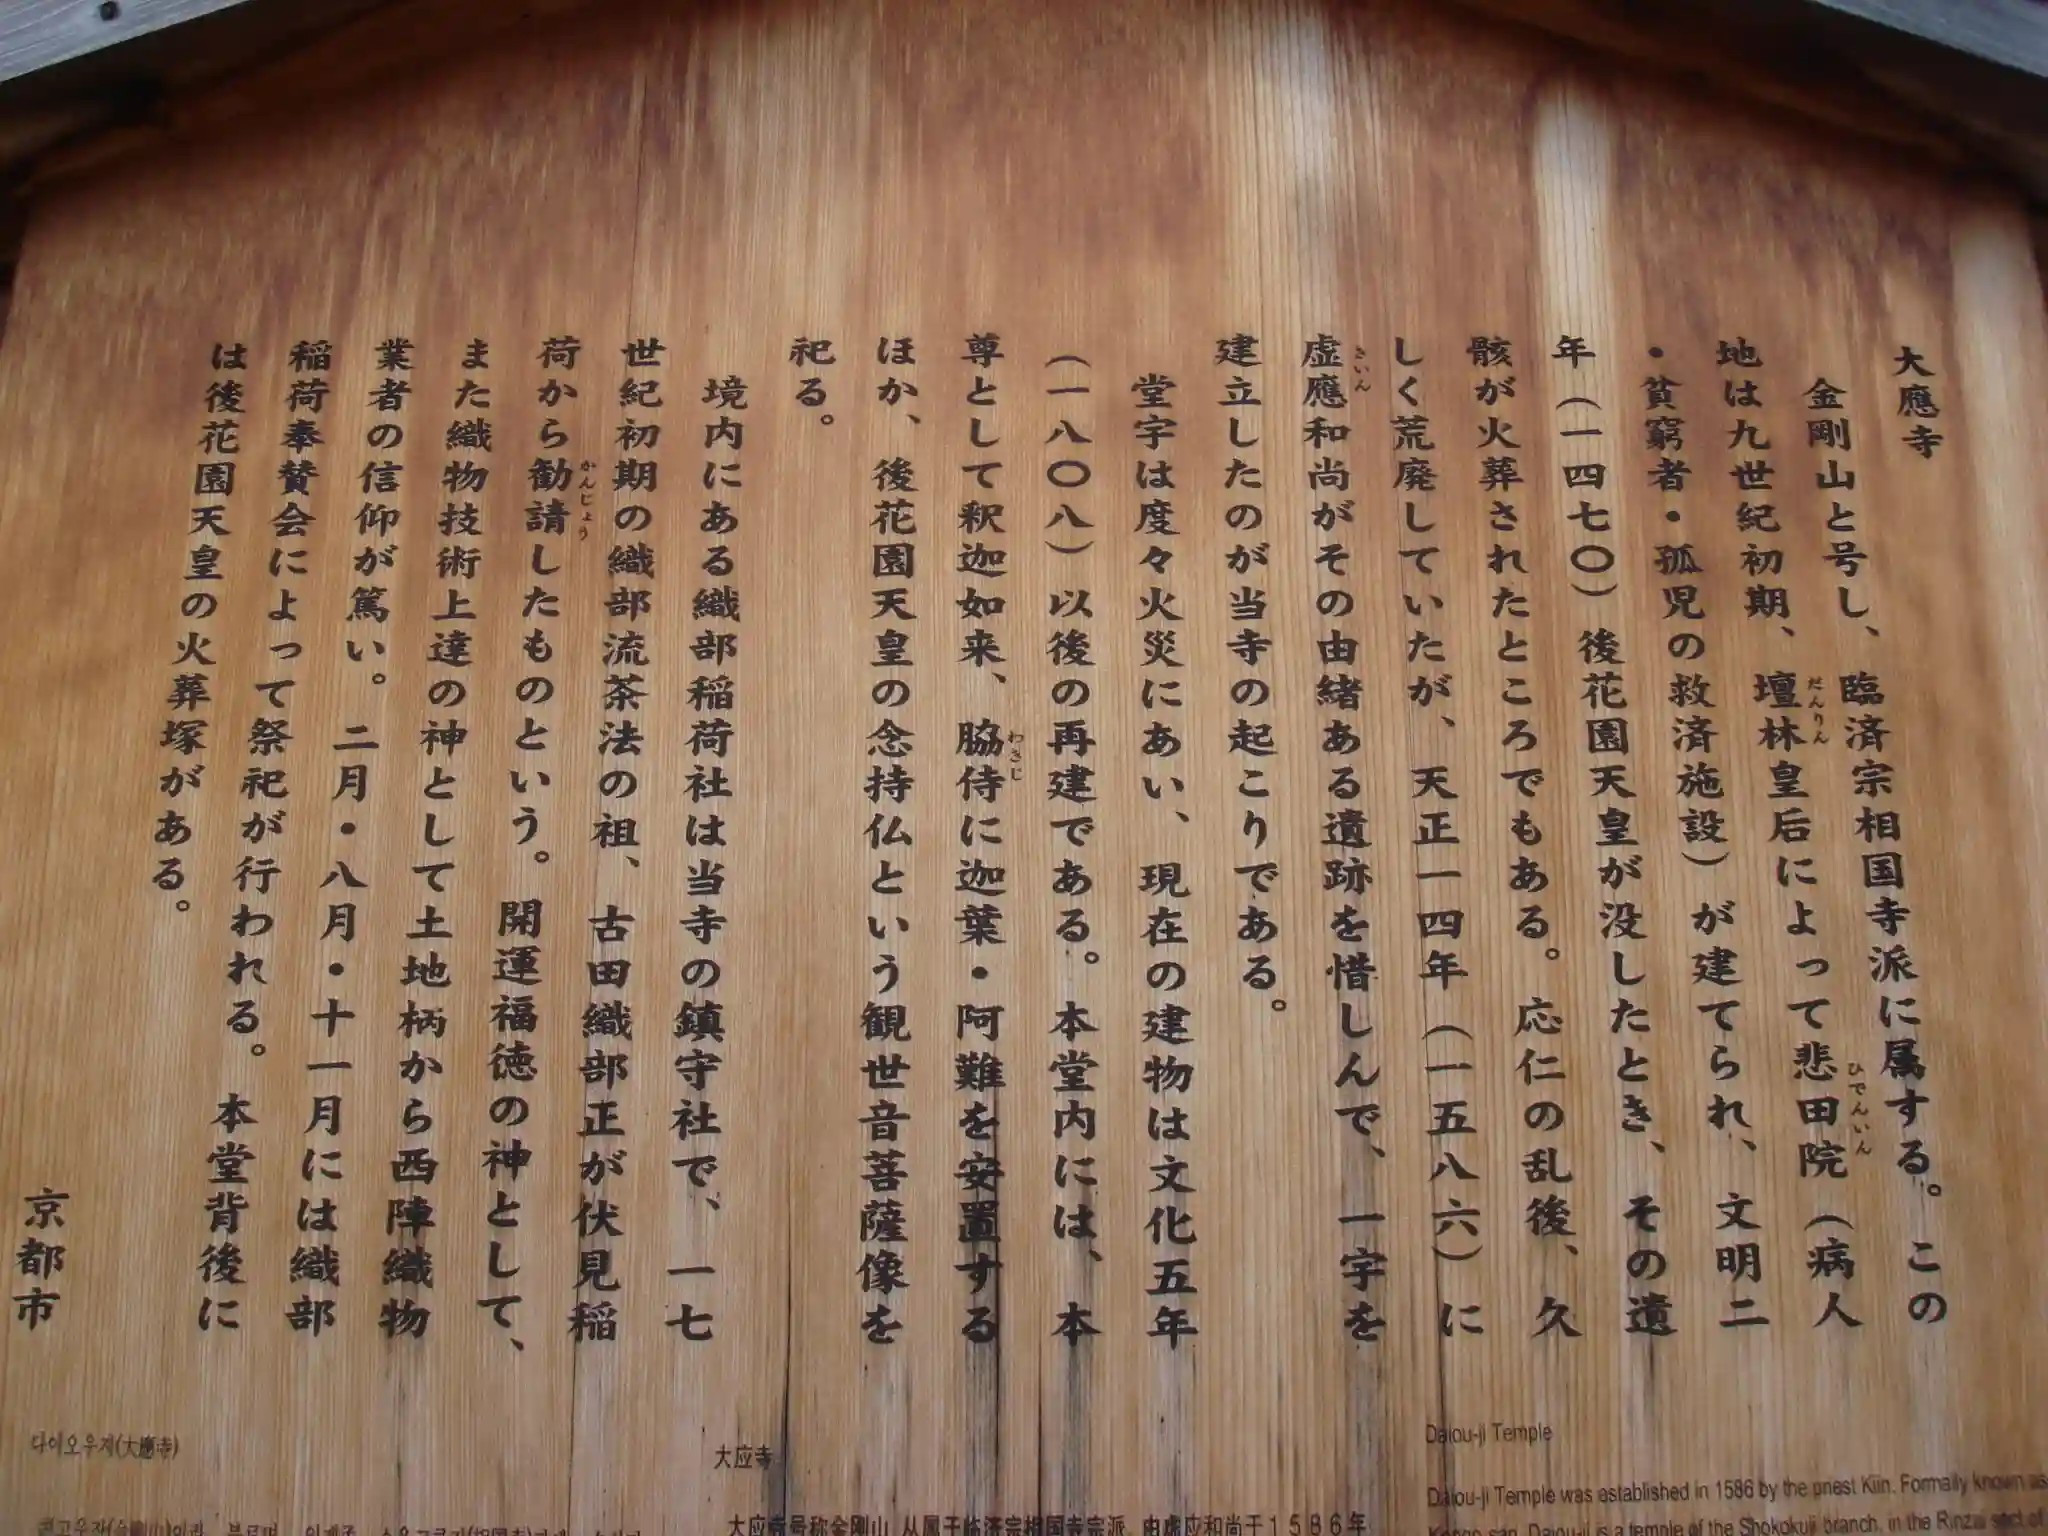 大應寺
金剛山と号し、臨済宗相国寺派に属する。この
地は九世紀初期、壇林皇后によって悲田院(病人
・貧窮者・孤児の救済施設)が建てられ、文明二
年(一四七〇)後花園天皇が没したとき、その遺
骸が火葬されたところでもある。応仁の乱後、久
しく荒廃していたが、天正一四年(一五八六)に
虚應和尚がその由緒ある遺跡を惜しんで、一宇を
建立したのが当寺の起こりである。
堂宇は度々火災にあい、現在の建物は文化五年
(一八〇八)以後の再建である。本堂内には、本
尊として釈迦如来、脇侍に迦葉・阿難を安置する
ほか、後花園天皇の念持仏という観世音菩薩像を
祀る。
境内にある織部稲荷社は当寺の鎮守社で、一七
世紀初期の織部流茶法の祖、古田織部正が伏見稲
荷から勧請したものという。開運福徳の神として、
また織物技術上達の神として土地柄から西陣織物
業者の信仰が篤い。二月・八月・十一月には織部
稲荷奉賛会によって祭祀が行われる。本堂背後に
は後花園天皇の火葬塚がある。
京都市
다이오우지(大應寺)
大应寺
大应寺号称金刚山,从属于临济宗相国寺宗派,由虚应和尚于1586年
Daiou-ji Temple
Daiou-ji Temple was established in 1586 by the priest Kiin. Formally known as
Kongo-san, Daiou-ji is a temple of the Shokokuji branch, in the Rinzai sect of